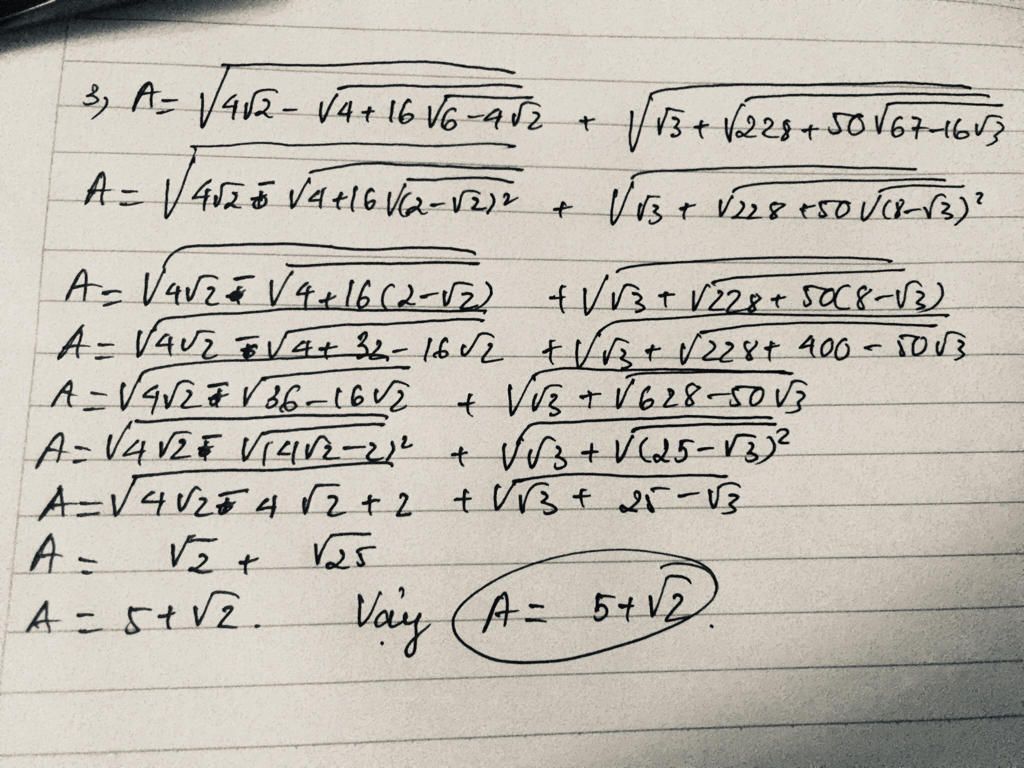 3, A = √(4√2 - √(4 + 16√(6 - 4√2))) + √(√3 + √(228 + 50√(67 - 16√3)))
A = √(4√2 - √(4 + 16√(2 - √2)²)) + √(√3 + √(228 + 50√(8 - √3)²))
A = √(4√2 - √(4 + 16(2 - √2))) + √(√3 + √(228 + 50(8 - √3)))
A = √(4√2 - √(4 + 32 - 16√2)) + √(√3 + √(228 + 400 - 50√3))
A = √(4√2 - √(36 - 16√2)) + √(√3 + √(628 - 50√3))
A = √(4√2 - √(4√2 - 2)²) + √(√3 + √(25 - √3)²)
A = √(4√2 - 4√2 + 2) + √(√3 + 25 - √3)
A = √2 + √25
A = 5 + √2. Vậy A = 5 + √2.